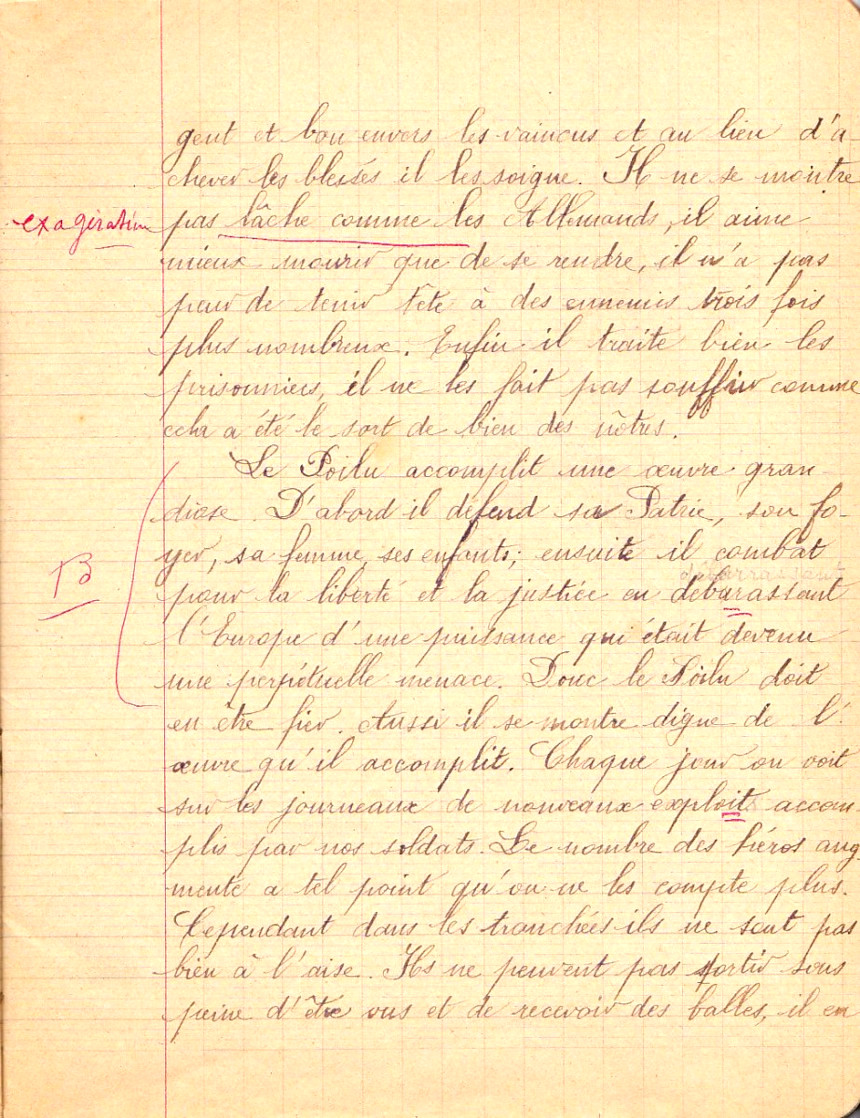 gent et bon envers les vaincus et au lieu d'a-
chever les blessés il les soigne. Il ne se montre
exagération pas lâche comme les Allemands, il aime
mieux mourir que de se rendre, il n'a pas
peur de tenir tête à des ennemis trois fois
plus nombreux. Enfin il traite bien les
prisonniers, il ne les fait pas souffrir comme
cela a été le sort de bien des nôtres.
Le Poilu accomplit une œuvre gran-
diose. D'abord il défend sa Patrie, son fo-
yer, sa femme, ses enfants; ensuite il combat
B
débarrassant
pour la liberté et la justice en débarassant
l'Europe d'une puissance qui était devenu
une perpétuelle menace. Donc le Poilu doit
en être fier. Aussi il se montre digne de l'
œuvre qu'il accomplit. Chaque jour on voit
sur les journeaux de nouveaux exploits accom-
plis par nos soldats. Le nombre des héros aug-
mente a tel point qu'on ne les compte plus.
Cependant dans les tranchées ils ne sont pas
bien à l'aise. Ils ne peuvent pas sortir sous
peine d'être vus et de recevoir des balles, il en